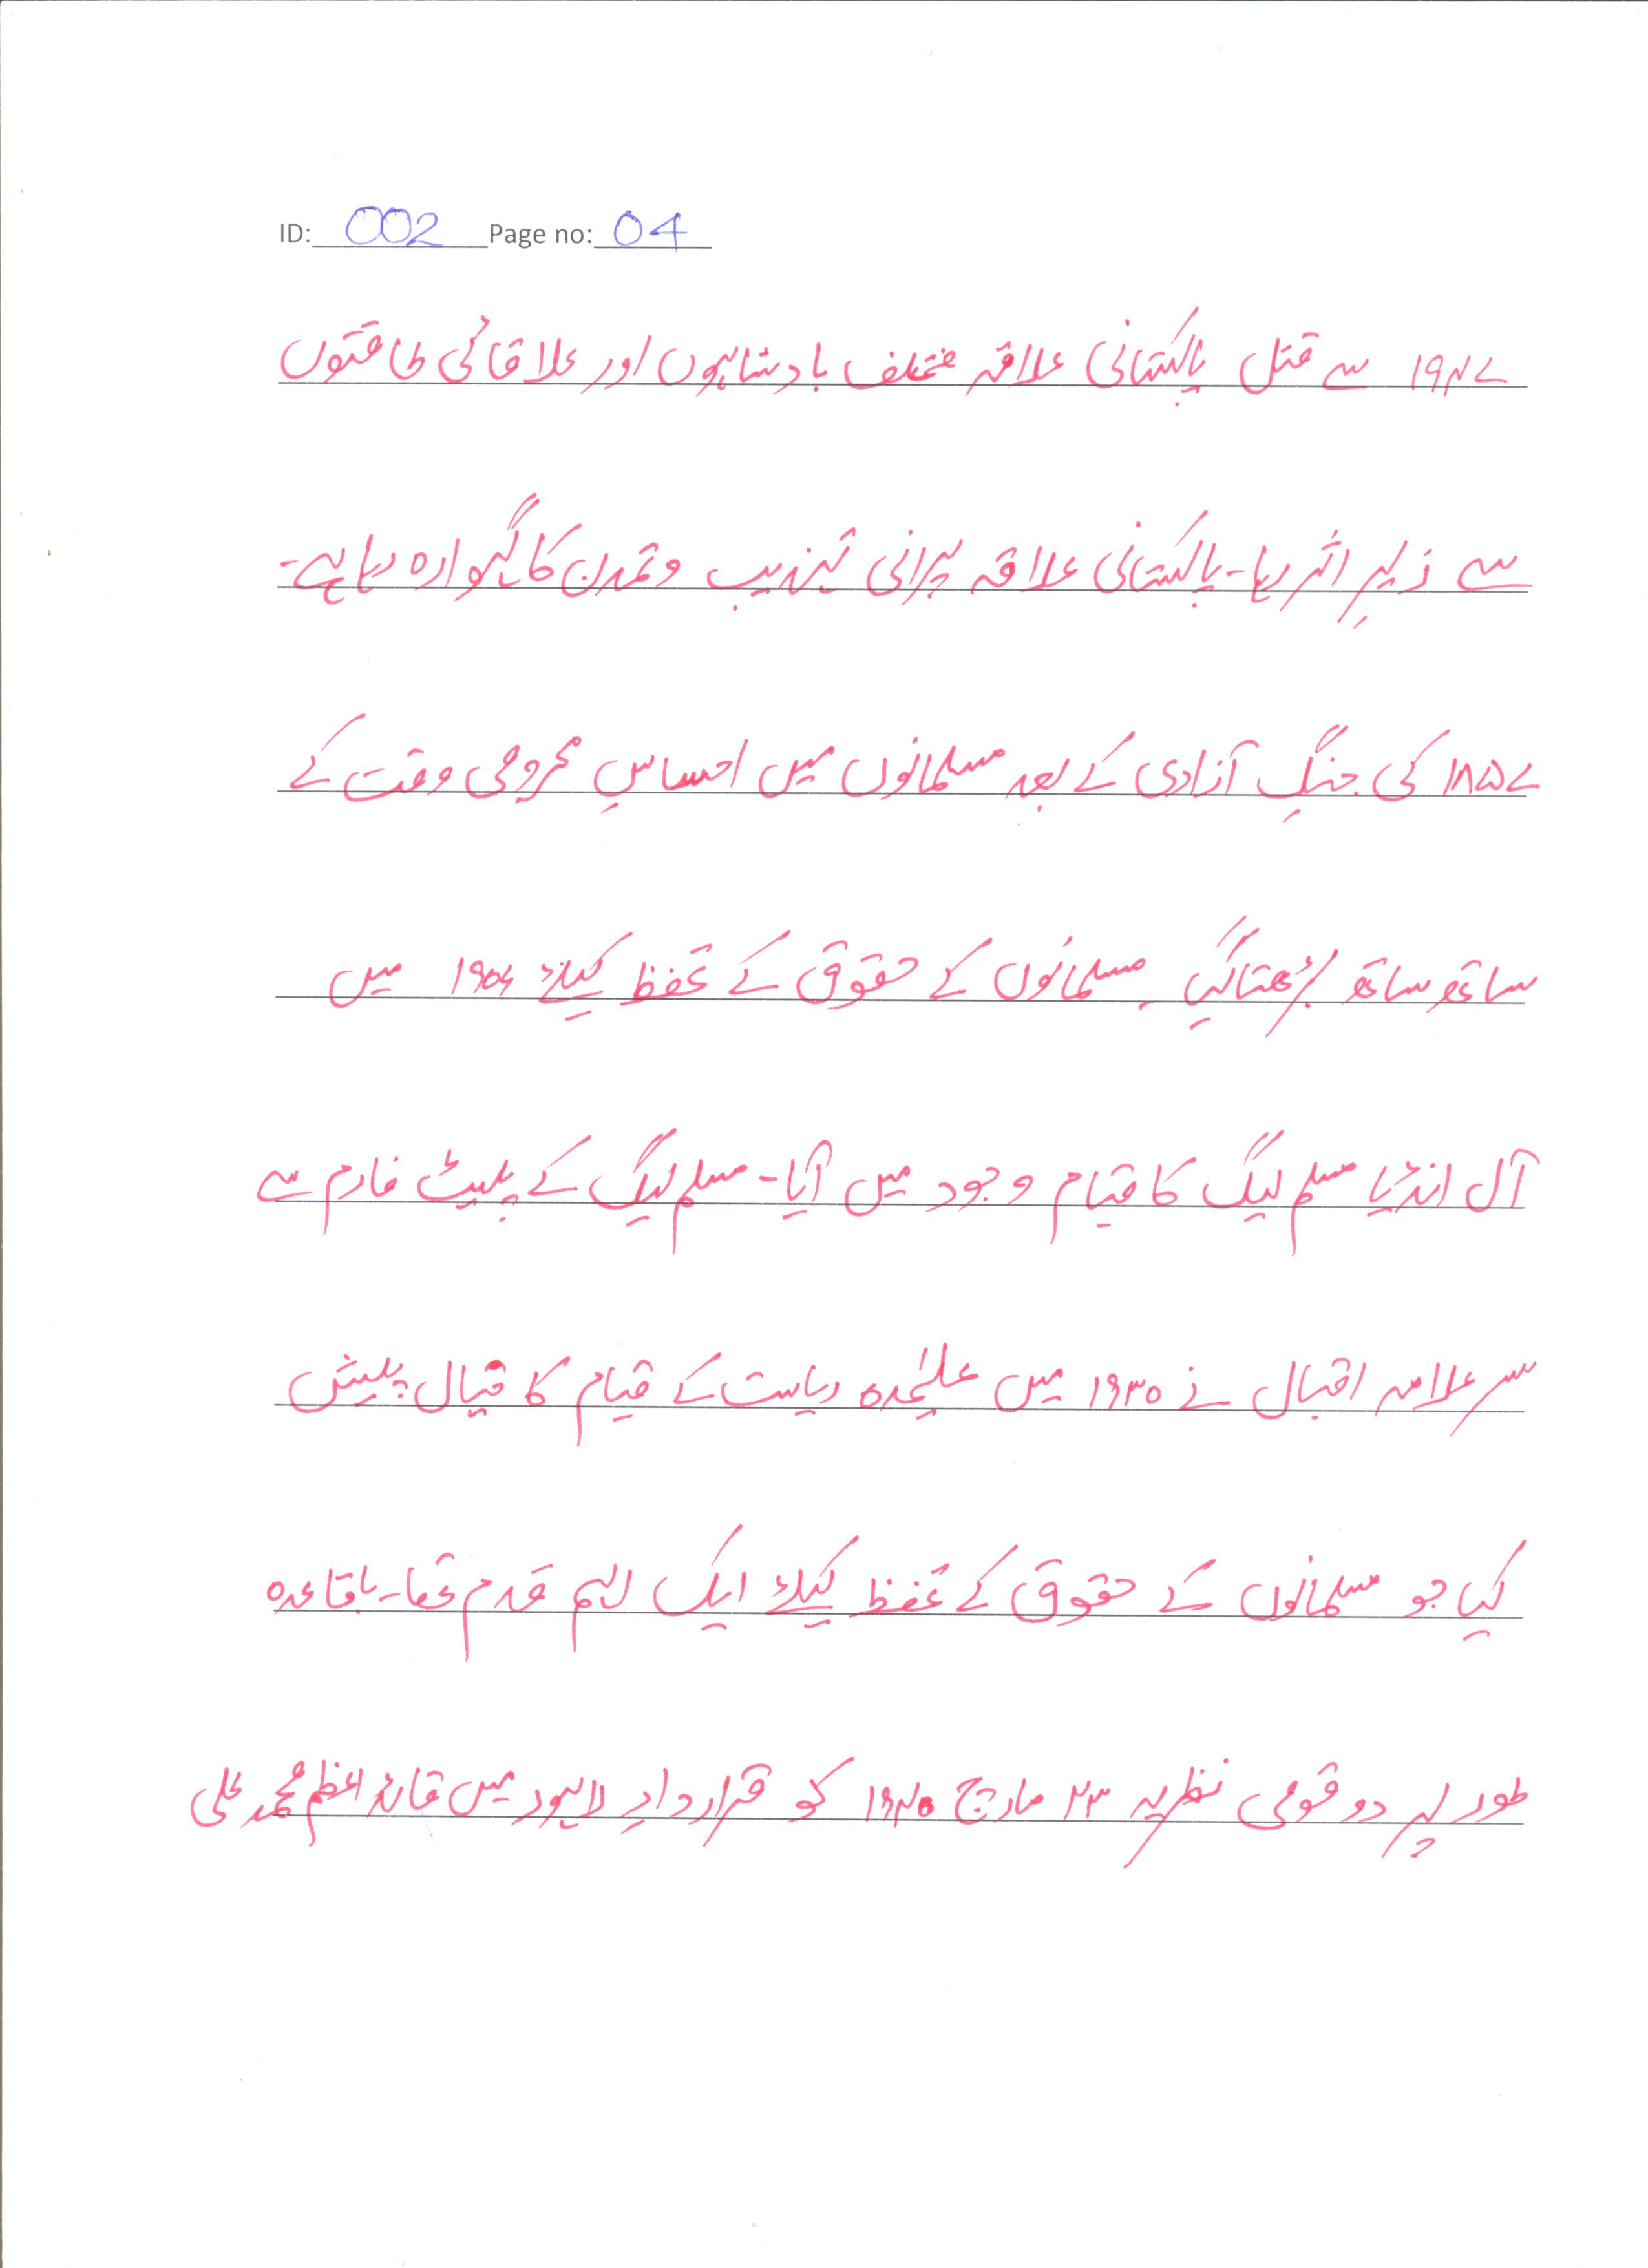 ID: 002 Page no: 04
۱۹۴۷ سے قبل پاکستانی علاقہ مختلف بادشاہوں اور علاقائی طاقتوں
سے زیرِ اثر رہا۔ پاکستانی علاقہ پرانی تہذیب و تمدن کا گہوارہ رہا ہے۔
۱۸۵۷ کی جنگِ آزادی کے بعد مسلمانوں میں احساسِ محرومی وقت کے
ساتھ ساتھ بڑھتا گیا۔ مسلمانوں کے حقوق کے تحفظ کیلئے ۱۹۰۶ میں
آل انڈیا مسلم لیگ کا قیام وجود میں آیا۔ مسلم لیگ کے پلیٹ فارم سے
سر علامہ اقبال نے ۱۹۳۰ میں علیٰحدہ ریاست کے قیام کا خیال پیش
کیا جو مسلمانوں کے حقوق کے تحفظ کیلئے ایک اہم قدم تھا۔ باقاعدہ
طور پر دو قومی نظریہ ۲۳ مارچ ۱۹۴۰ کو قراردادِ لاہور میں قائد اعظم محمد علی